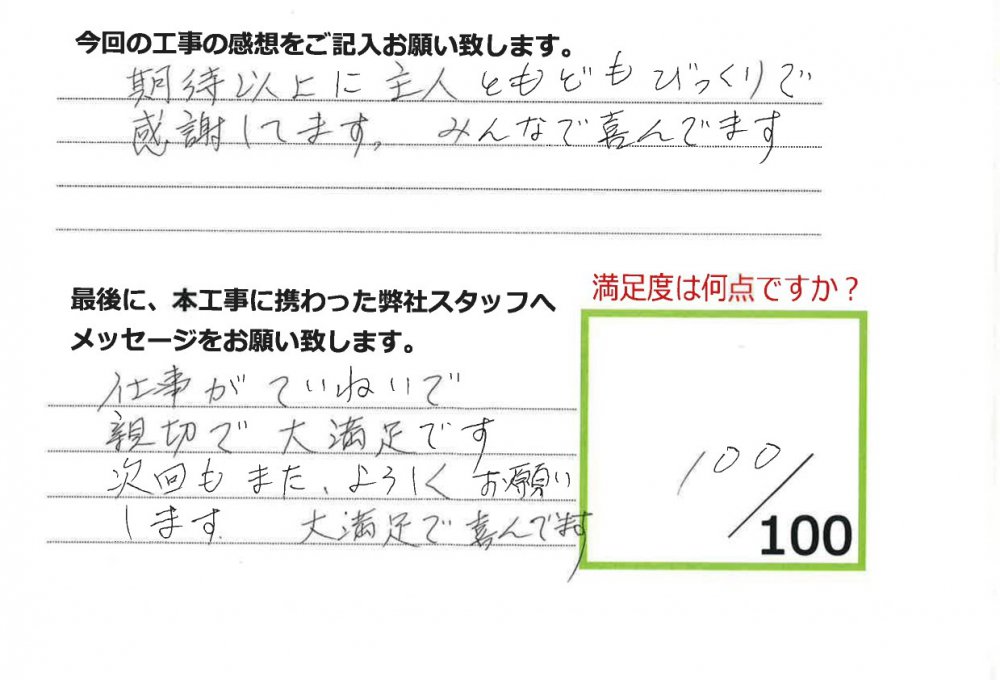 今回の工事の感想をご記入お願い致します。
期待以上に主人ともどもびっくりで
感謝してます。 みんなで喜んでます
最後に、本工事に携わった弊社スタッフへ
メッセージをお願い致します。
仕事がていねいで
親切で大満足です
次回もまた、ようしくお願い
します。 大満足で喜んでます
満足度は何点ですか？
100/
100